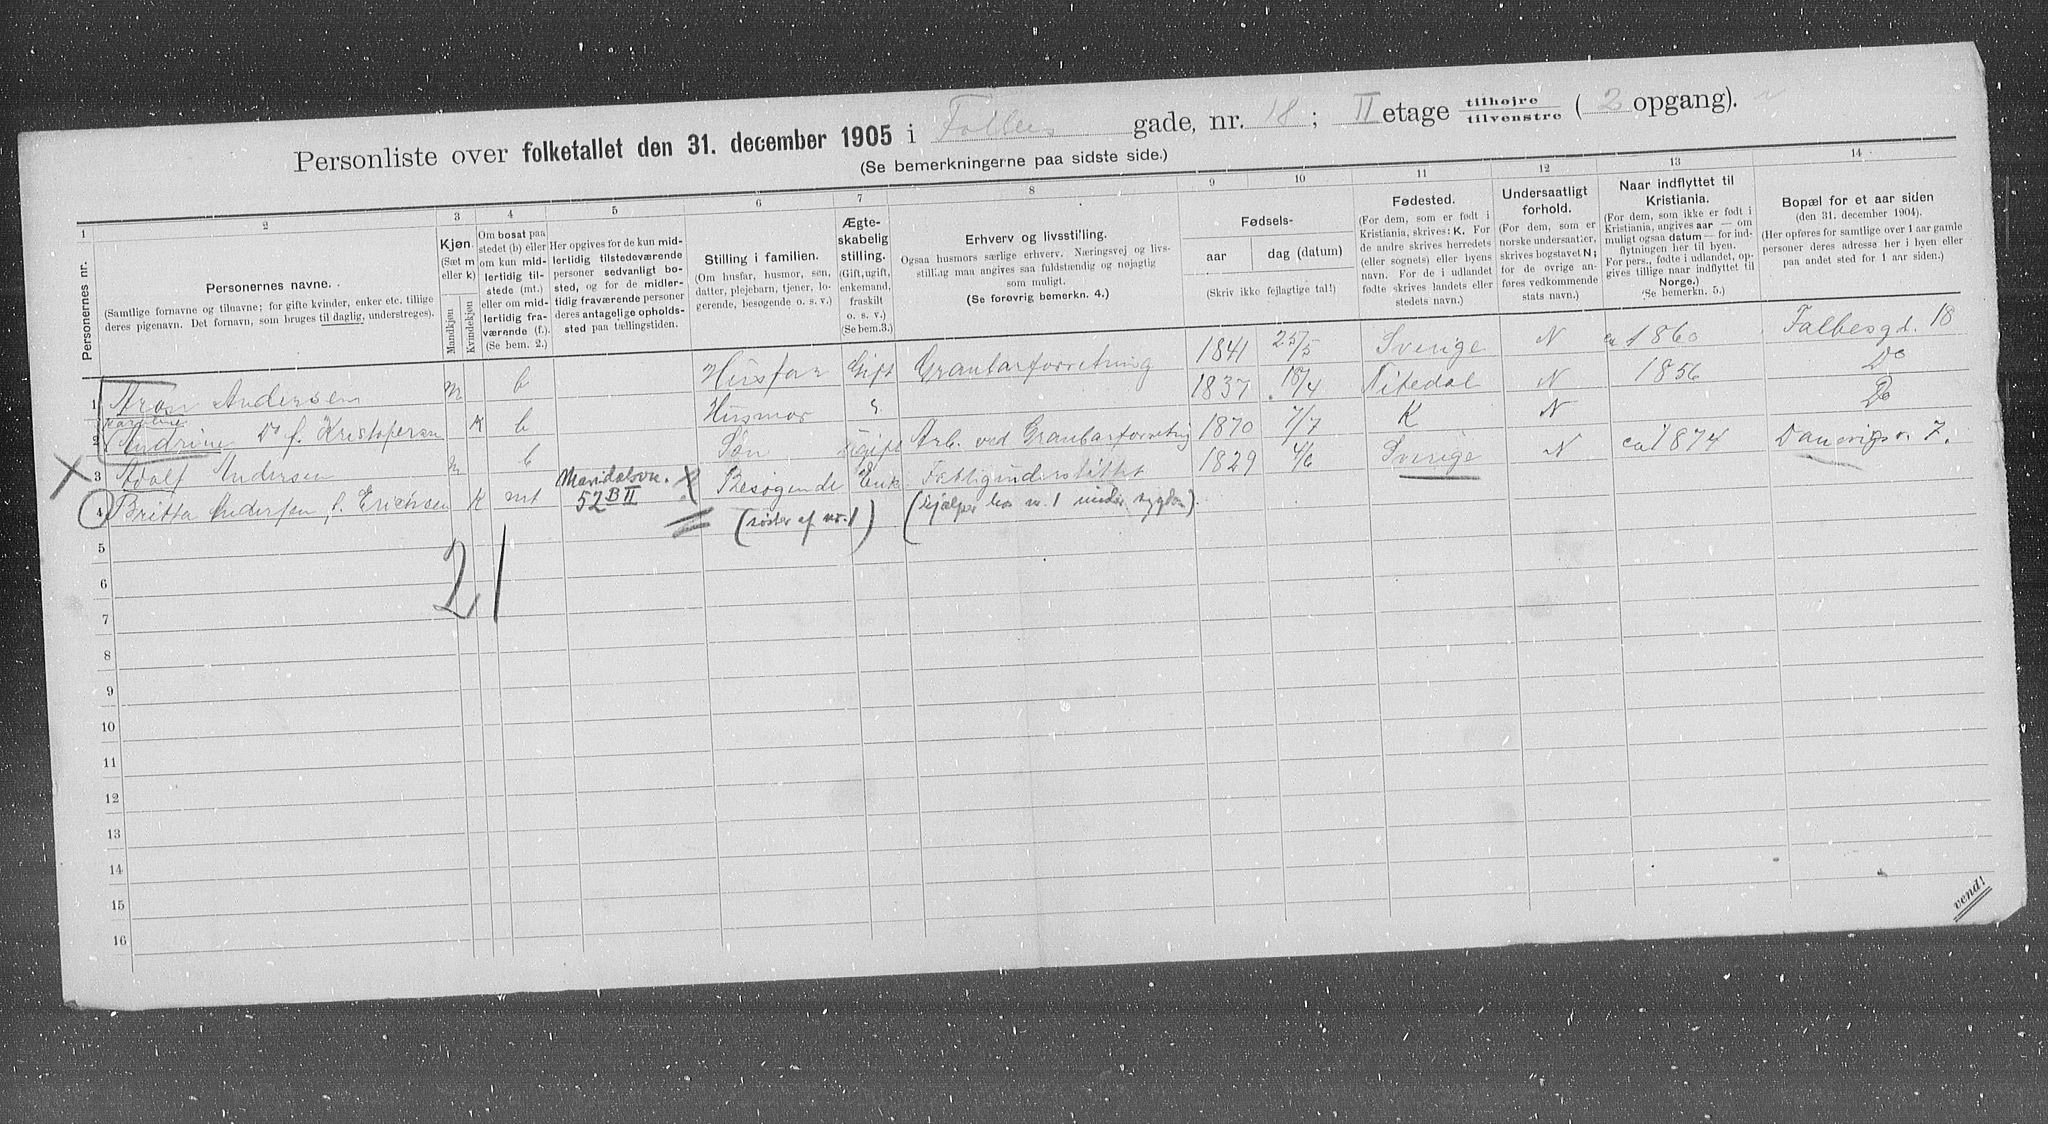 Personliste over folketallet den 31. december 1905 i Falbes gade, nr. 18; II etage tilhøjre / tilvenstre (2 opgang).
(Se bemerkningerne paa sidste side.)
1 2 3 4 5 6 7 8 9 10 11 12 13 14
Personernes nr.
Personernes navne.
(Samtlige fornavne og tilnavne; for gifte kvinder, enker etc. tillige deres pigenavn. Det fornavn, som bruges til daglig, understreges).
Kjøn. (Sæt m eller k) Mandkjøn Kvindekjøn
Om bosat paa stedet (b) eller om kun midlertidig tilstede (mt.) eller om midlertidig fraværende (f.) (Se bem. 2.)
Her opgives for de kun midlertidig tilstedeværende personer sedvanligt bosted, og for de midlertidig fraværende personer deres antagelige opholdssted paa tællingstiden.
Stilling i familien.
(Om husfar, husmor, søn, datter, plejebarn, tjener, logerende, besøgende o. s. v.)
Ægteskabelig stilling.
(Gift, ugift, enkemand, fraskilt o. s. v.) (Se bem.3.)
Erhverv og livsstilling.
Ogsaa husmors særlige erhverv. Næringsvej og livsstilling maa angives saa fuldstændig og nøjagtig som muligt.
(Se forøvrig bemerkn. 4.)
Fødsels-
aar dag (datum)
(Skriv ikke fejlagtige tal!)
Fødested.
(For dem, som er født i Kristiania, skrives: K. For de andre skrives herredets (eller sognets) eller byens navn. For de i udlandet fødte skrives landets eller stedets navn.)
Undersaatligt forhold.
(For dem, som er norske undersaatter, skrives bogstavet N; for de øvrige anføres vedkommende stats navn.)
Naar indflyttet til Kristiania.
(For dem, som ikke er født i Kristiania, angives aar — om muligt ogsaa datum — for indflytningen her til byen. For pers., fødte i udlandet, opgives tillige naar indflyttet til Norge.)
(Se bemerkn. 5.)
Bopæl for et aar siden
(den 31. december 1904).
(Her opføres for samtlige over 1 aar gamle personer deres adresse her i byen eller paa andet sted for 1 aar siden.)
1 Aron Andersen m b Husfar Gift Granbarforretning 1841 25/5 Sverige N ca 1860 Falbesgd. 18
2 Karoline Andrine Do f. Kristofersen K b Husmor G. 1837 18/4 Nitedal N 1856 Do
3 Adolf Andersen m b Søn Ugift Arb. ved Granbarforretnig 1870 7/7 K N Do
4 Britta Andersen f. Erichsen K mt Maridalsvn. 52 B II Besøgende Enke Fattigunderstøttet 1829 4/6 Sverige N ca 1874 Danevigsv. 7.
(søster af nr. 1) (hjælper hos nr. 1 under sygdom).
21
5
6
7
8
9
10
11
12
13
14
15
16
vend!